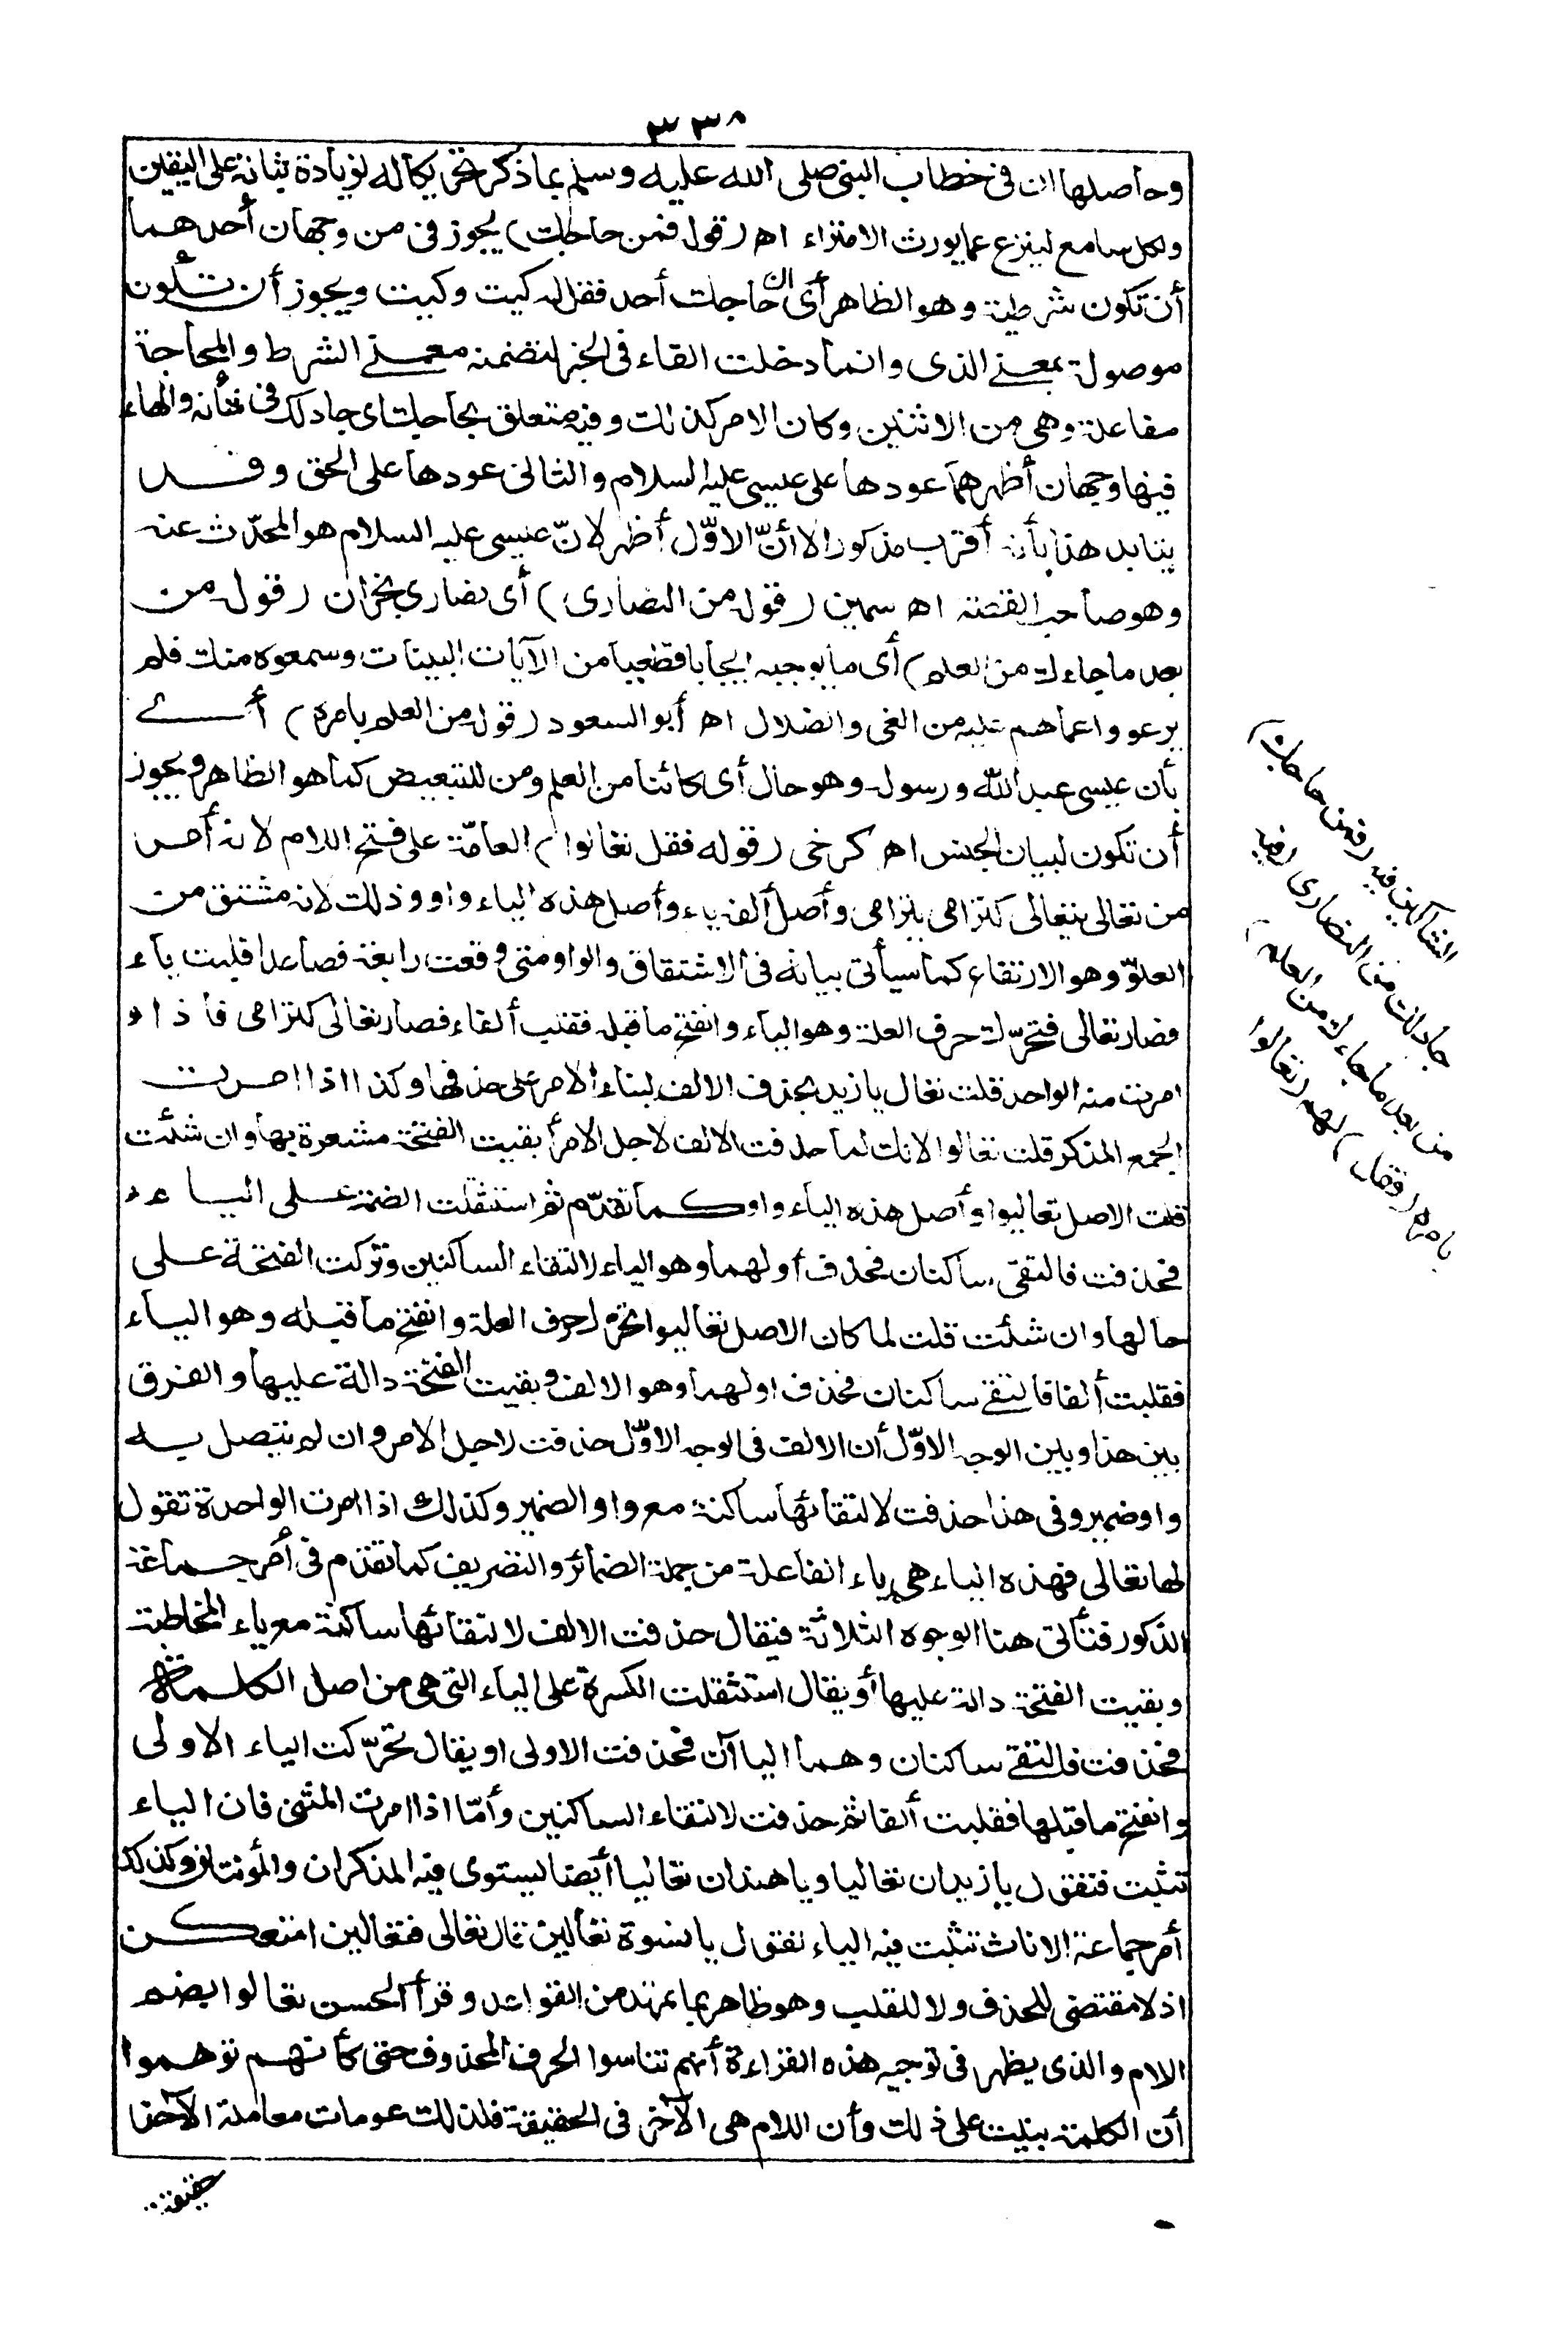 ٣٣٨
وحاصلها ان فى خطاب النبى صلى الله عليه وسلم بما ذكر تحريكا له لزيادة ثباته على اليقين
ولكل سامع لينزع عما يورث الامتراء اه (قوله فمن حاجك) يجوز فى من وجهان أحدهما
أن تكون شرطية وهو الظاهر أى ان حاجك أحد فقل له كيت وكيت ويجوز أن تكون
موصولة بمعنى الذى وانما دخلت الفاء فى الخبر لتضمنه معنى الشرط والمحاجة
مفاعلة وهى من الاثنين وكان الامر كذلك وفيه متعلق بحاجك اى جادلك فى شأنه والهاء
فيها وجهان أظهرهما عودها على عيسى عليه السلام والثانى عودها على الحق وقد
يتأيد هذا بأنه أقرب مذكور الا أنّ الاوّل أظهر لانّ عيسى عليه السلام هو المحدّث عنه
وهو صاحب القصة اه سمين (قوله من النصارى) أى نصارى نجران (قوله من
بعد ما جاءك من العلم) أى ما يوجبه ايجابا قطعيا من الآيات البينات وسمعوه منك فلم
يرعووا عما هم عليه من الغى والضلال اه أبو السعود (قوله من العلم بامره) أى
بأن عيسى عبد الله ورسوله وهو حال أى كائنا من العلم ومن للتبعيض كما هو الظاهر ويجوز
أن تكون لبيان الجنس اه كرخى (قوله فقل تعالوا) العامّة على فتح اللام لانه أمر
من تعالى يتعالى كترامى يترامى وأصل ألفه ياء وأصل هذه الياء واو وذلك لانه مشتق من
العلوّ وهو الارتفاع كما سيأتى بيانه فى الاشتقاق والواو متى وقعت رابعة فصاعدا قلبت ياء
فصار تعالى فتحرّك حرف العلة وهو الياء وانفتح ما قبله فقلب ألفاء فصار تعالى كترامى فاذا
امرت منه الواحد قلت تعال يا زيد بحذف الالف لبناء الامر على حذفها وكذا اذا امرت
الجمع المذكر قلت تعالوا لانك لما حذفت الالف لاجل الامر أبقيت الفتحة مشعرة بها وان شئت
قلت الاصل تعاليوا وأصل هذه الياء واو كما تقدّم ثم استثقلت الضمة على الياء
فحذفت فالتقى ساكنان فحذف أولهما وهو الياء لالتقاء الساكنين وتركت الفتحة على
حالها وان شئت قلت لما كان الاصل تعاليوا تحرك حرف العلة وانفتح ما قبله وهو الياء
فقلبت ألفا فالتقى ساكنان فحذف اولهما وهو الالف وبقيت الفتحة دالة عليها والفرق
بين هذا وبين الوجه الاوّل أن الالف فى الوجه الاوّل حذفت لاجل الامر وان لم يتصل به
واو ضمير وفى هذا حذفت لالتقائها ساكنة مع واو الضمير وكذلك اذا امرت الواحدة تقول
لها تعالى فهذه الياء هى ياء الفاعلة من جملة الضمائر والتصريف كما تقدم فى أمر جماعة
الذكور فتأتى هنا الوجوه الثلاثة فيقال حذفت الالف لالتقائها ساكنة مع ياء المخاطبة
وبقيت الفتحة دالة عليها أو يقال استثقلت الكسرة على الياء التى هى من اصل الكلمة
فحذفت فالتقى ساكنان وهما الياآن فحذفت الاولى او يقال تحرّكت الياء الاولى
وانفتح ما قبلها فقلبت ألفا ثم حذفت لالتقاء الساكنين وأمّا اذا امرت المثنى فان الياء
تثبت فتقول يا زيدان تعاليا ويا هندان تعاليا أيضا يستوى فيه المذكران والمؤنثان وكذلك
أمر جماعة الاناث تثبت فيه الياء تقول يا نسوة تعالين قال تعالى فتعالين امتعكن
اذ لا مقتضى للحذف ولا للقلب وهو ظاهر بما تمهد من القواعد وقرأ الحسن تعالوا بضم
اللام والذى يظهر فى توجيه هذه القراءة أنهم تناسوا الحرف المحذوف حتى كأنهم توهموا
أن الكلمة بنيت على ذلك وأن اللام هى الآخر فى الحقيقة فلذلك عوملت معاملة الآخر
حقيقة
الشاكين فيه (فمن حاجك)
جادلك من النصارى (فيه
من بعد ما جاءك من العلم)
بامره (فقل) لهم (تعالوا